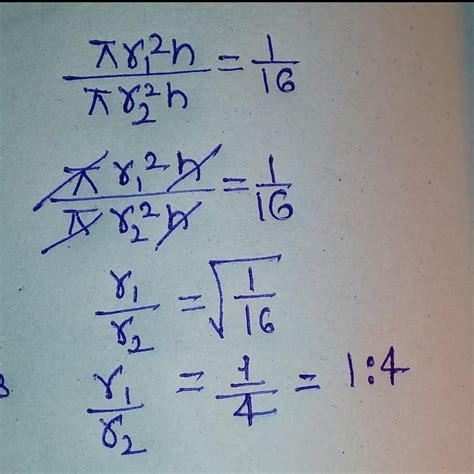 πr₁²h/πr₂²h = 1/16
πr₁²h/πr₂²h = 1/16
r₁/r₂ = √(1/16)
r₁/r₂ = 1/4 = 1:4